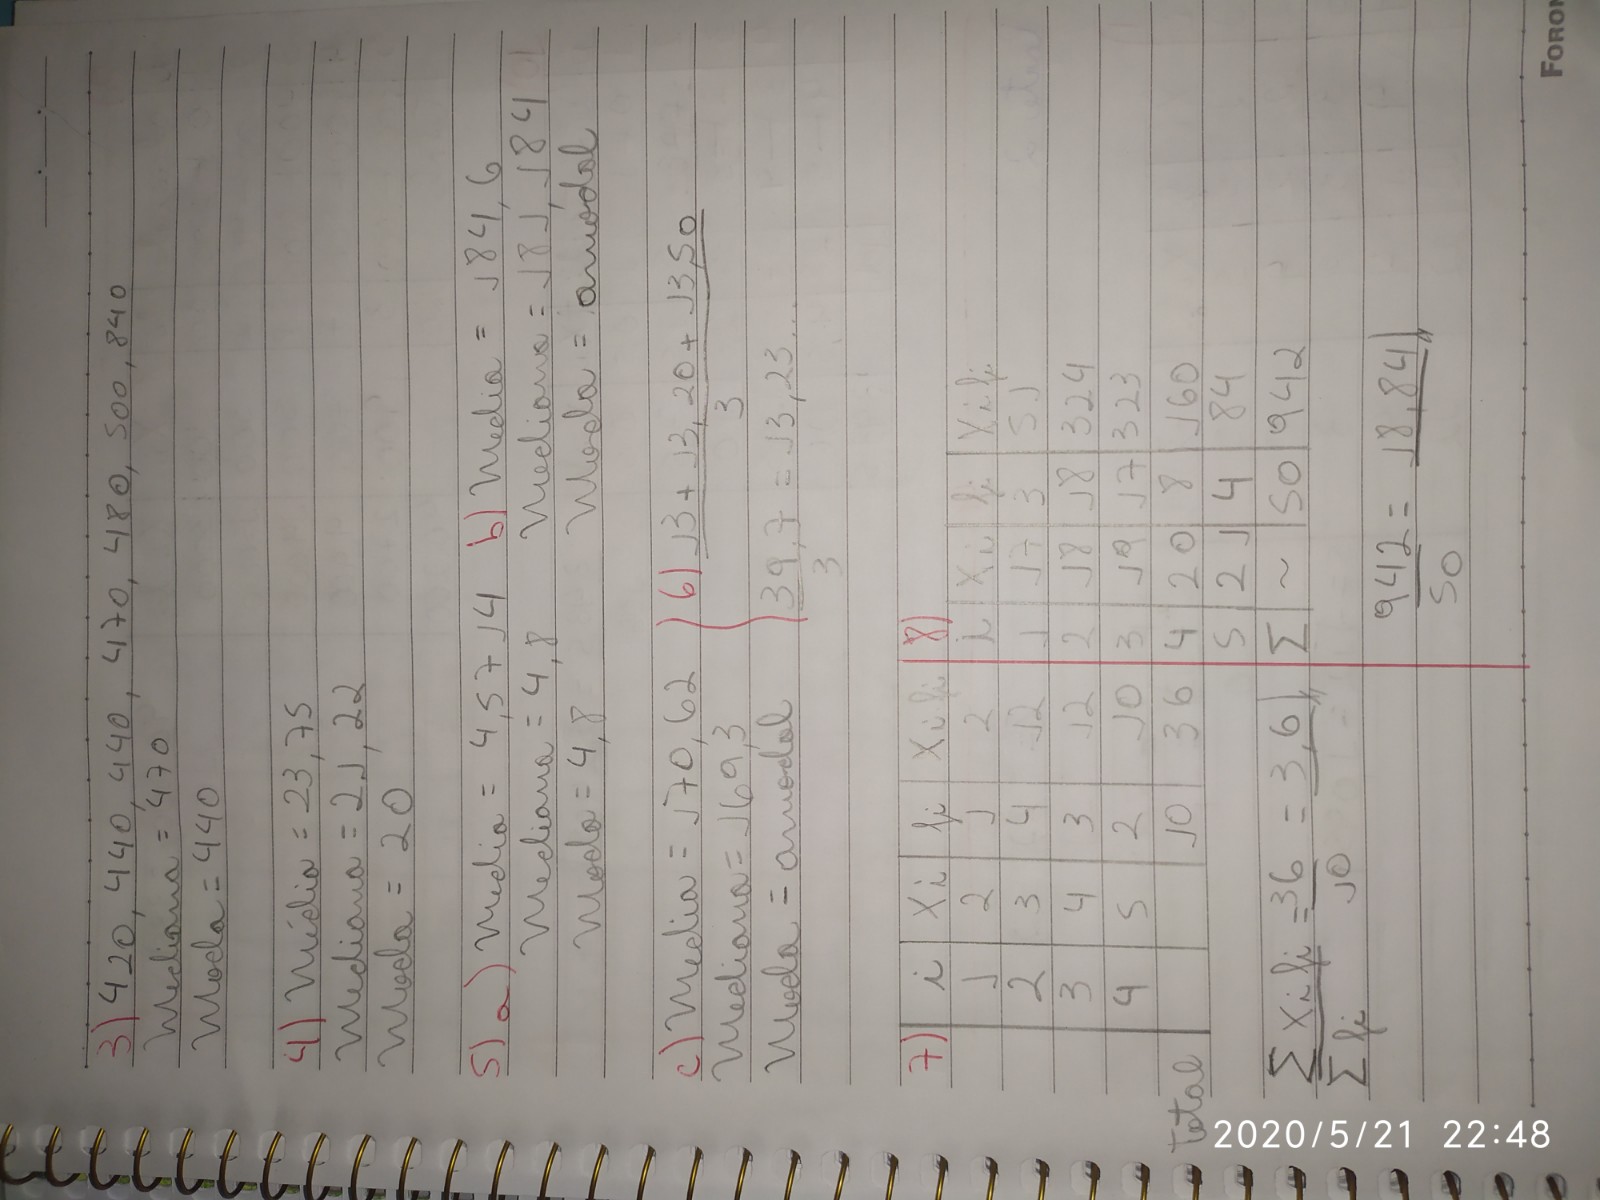 3) 420, 440, 440, 470, 480, 500, 840
Mediana = 470
Moda = 440
4) Média = 23,75
Mediana = 21,22
Moda = 20
5) a) Media = 4,5714
Mediana = 4,8
Moda = 4,8
b) Media = 184,6
Mediana = 181,184
Moda = amodal
c) Media = 170,62
Mediana = 169,3
Moda = amodal
6) 13 + 13,20 + 13,50
3
39,7 = 13,23...
3
7)
i Xi fi Xifi
1 2 1 2
2 3 4 12
3 4 3 12
4 5 2 10
total 10 36
Σ Xifi = 36 = 3,6
Σ fi 10
8)
i Xi fi Xifi
1 17 3 51
2 18 18 324
3 19 17 323
4 20 8 160
5 21 4 84
Σ ~ 50 942
942 = 18,84
50
FORON
2020/5/21 22:48